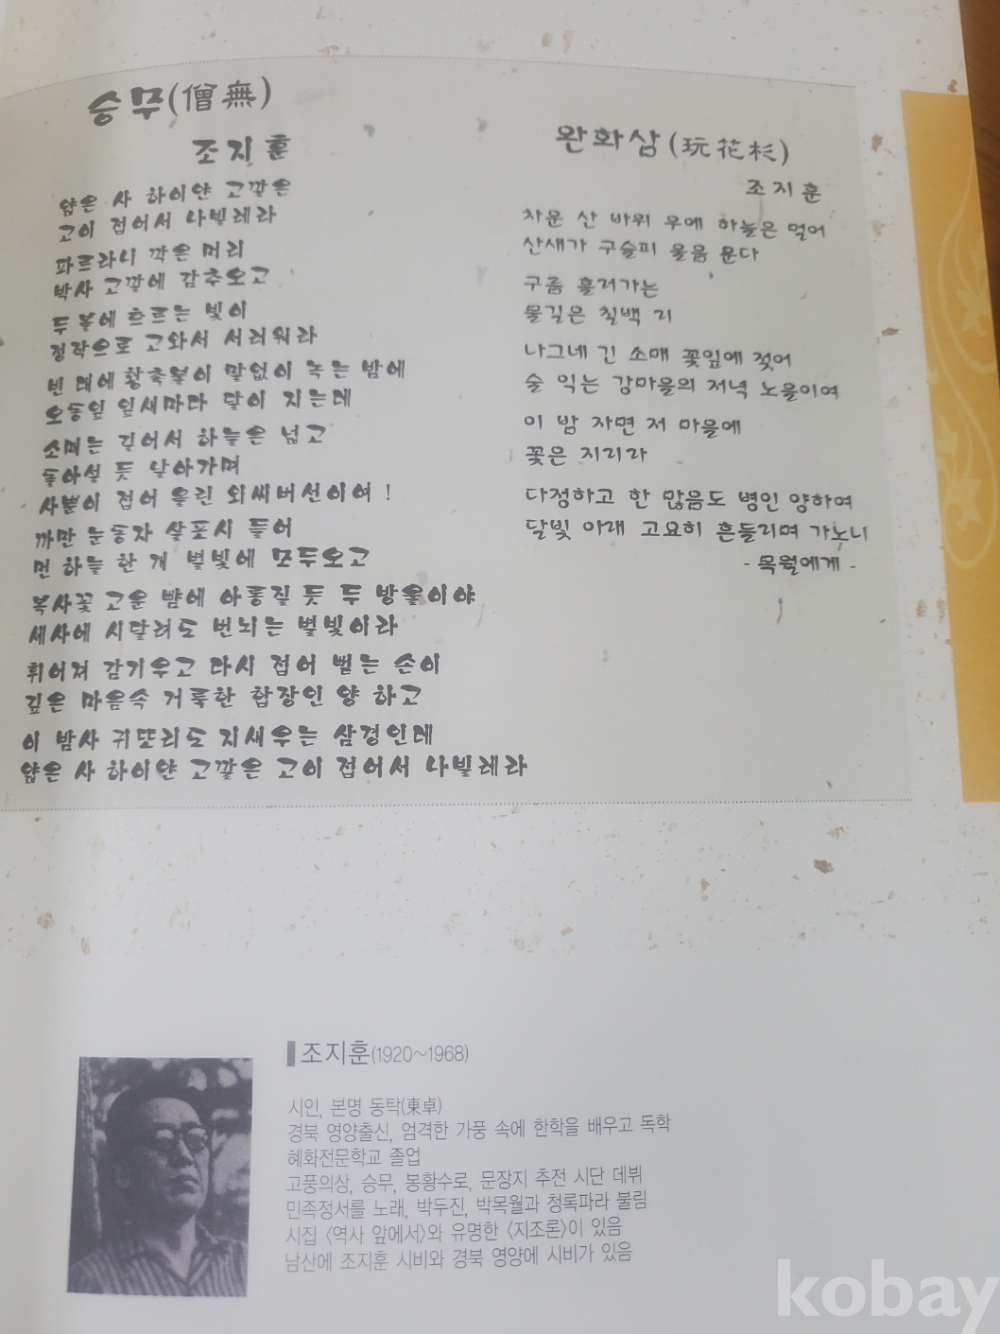 승무(僧無)
조지훈
얇은 사 하이얀 고깔은
고이 접어서 나빌레라
파르라니 깍은 머리
박사 고깔에 감추오고
두 볼에 흐르는 빛이
정작으로 고와서 서러워라
빈 대에 황촉불이 말없이 녹는 밤에
오동잎 잎새마다 달이 지는데
소매는 길어서 하늘은 넓고
돌아설 듯 날아가며
사뿐이 접어 올린 외씨버선이여 !
까만 눈동자 살포시 들어
먼 하늘 한 개 별빛에 모두오고
복사꽃 고운 뺨에 아롱질 듯 두 방울이야
세사에 시달려도 번뇌는 별빛이라
휘어져 감기우고 다시 접어 뻗는 손이
깊은 마음속 거룩한 합장인 양 하고
이 밤사 귀또리도 지새우는 삼경인데
얇은 사 하이얀 고깔은 고이 접어서 나빌레라
완화삼(玩花杉)
조지훈
차운 산 바위 우에 하늘은 멀어
산새가 구슬피 울음 운다
구름 흘러가는
물길은 칠백 리
나그네 긴 소매 꽃잎에 젖어
술 익는 강마을의 저녁 노을이여
이 밤 자면 저 마을에
꽃은 지리라
다정하고 한 많음도 병인 양하여
달빛 아래 고요히 흔들리며 가노니
- 목월에게 -
조지훈(1920~1968)
시인, 본명 동탁(東卓)
경북 영양출신, 엄격한 가풍 속에 한학을 배우고 독학
혜화전문학교 졸업
고풍의상, 승무, 봉황수로, 문장지 추전 시단 데뷔
민족정서를 노래, 박두진, 박목월과 청록파라 불림
시집 〈역사 앞에서〉와 유명한 〈지조론〉이 있음
남산에 조지훈 시비와 경북 영양에 시비가 있음
kobay